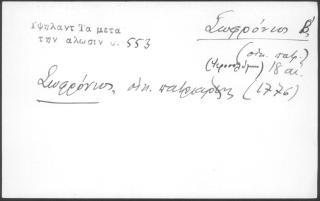 Υψηλαντ Τα μετα
την αλωσιν σ. 553
Σωφρόνιος Β΄
(οἰκ. πατρ.)
(Ἱεροσολύμων) 18 αἰ.
Σωφρόνιος, οἰκ. πατριάρχης (1776)